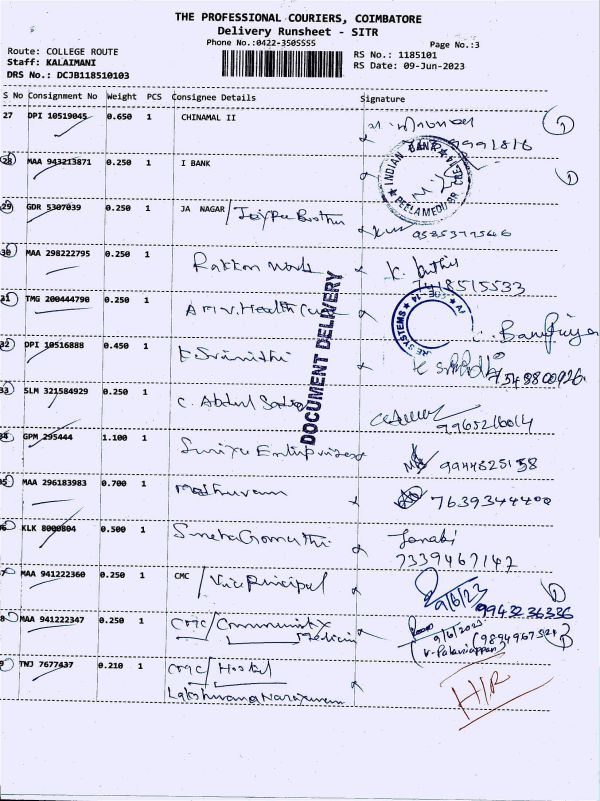 THE PROFESSIONAL COURIERS, COIMBATORE
Delivery Runsheet - SITR
Phone No.:0422-3505555
Page No.:3
Route: COLLEGE ROUTE
Staff: KALAIMANI
DRS No.: DCJB118510103
RS No.: 1185101
RS Date: 09-Jun-2023
S No Consignment No Weight PCS Consignee Details Signature
27 DPI 10519045 0.650 1 CHINAMAL II
28 MAA 943213871 0.250 1 I BANK
INDIAN BANK
PEELAMEDU
29 GDR 5307039 0.250 1 JA NAGAR
30 MAA 298222795 0.250 1
7418515533
31 TMG 200444790 0.250 1 A M.V. Health
32 DPI 10516888 0.450 1 K. Srinithi
DOCUMENT DELIVERY
33 SLM 321584929 0.250 1 C. Abdul
9965216014
34 GPM 295444 1.100 1
9944825158
35 MAA 296183983 0.700 1 Mathuvam
7639344400
36 KLK 8000804 0.500 1 Sneha Gomathi
Janaki
7339467147
MAA 941222360 0.250 1 CMC / Vice Principal
9/6/23
9943236336
38 MAA 941222347 0.250 1 CMC / Community Medicine
9/6/2023
(9894967524)
V. Palaniappan
TNJ 7677437 0.210 1 CMC / Hostel
Lakshmana Narayanan
H/R